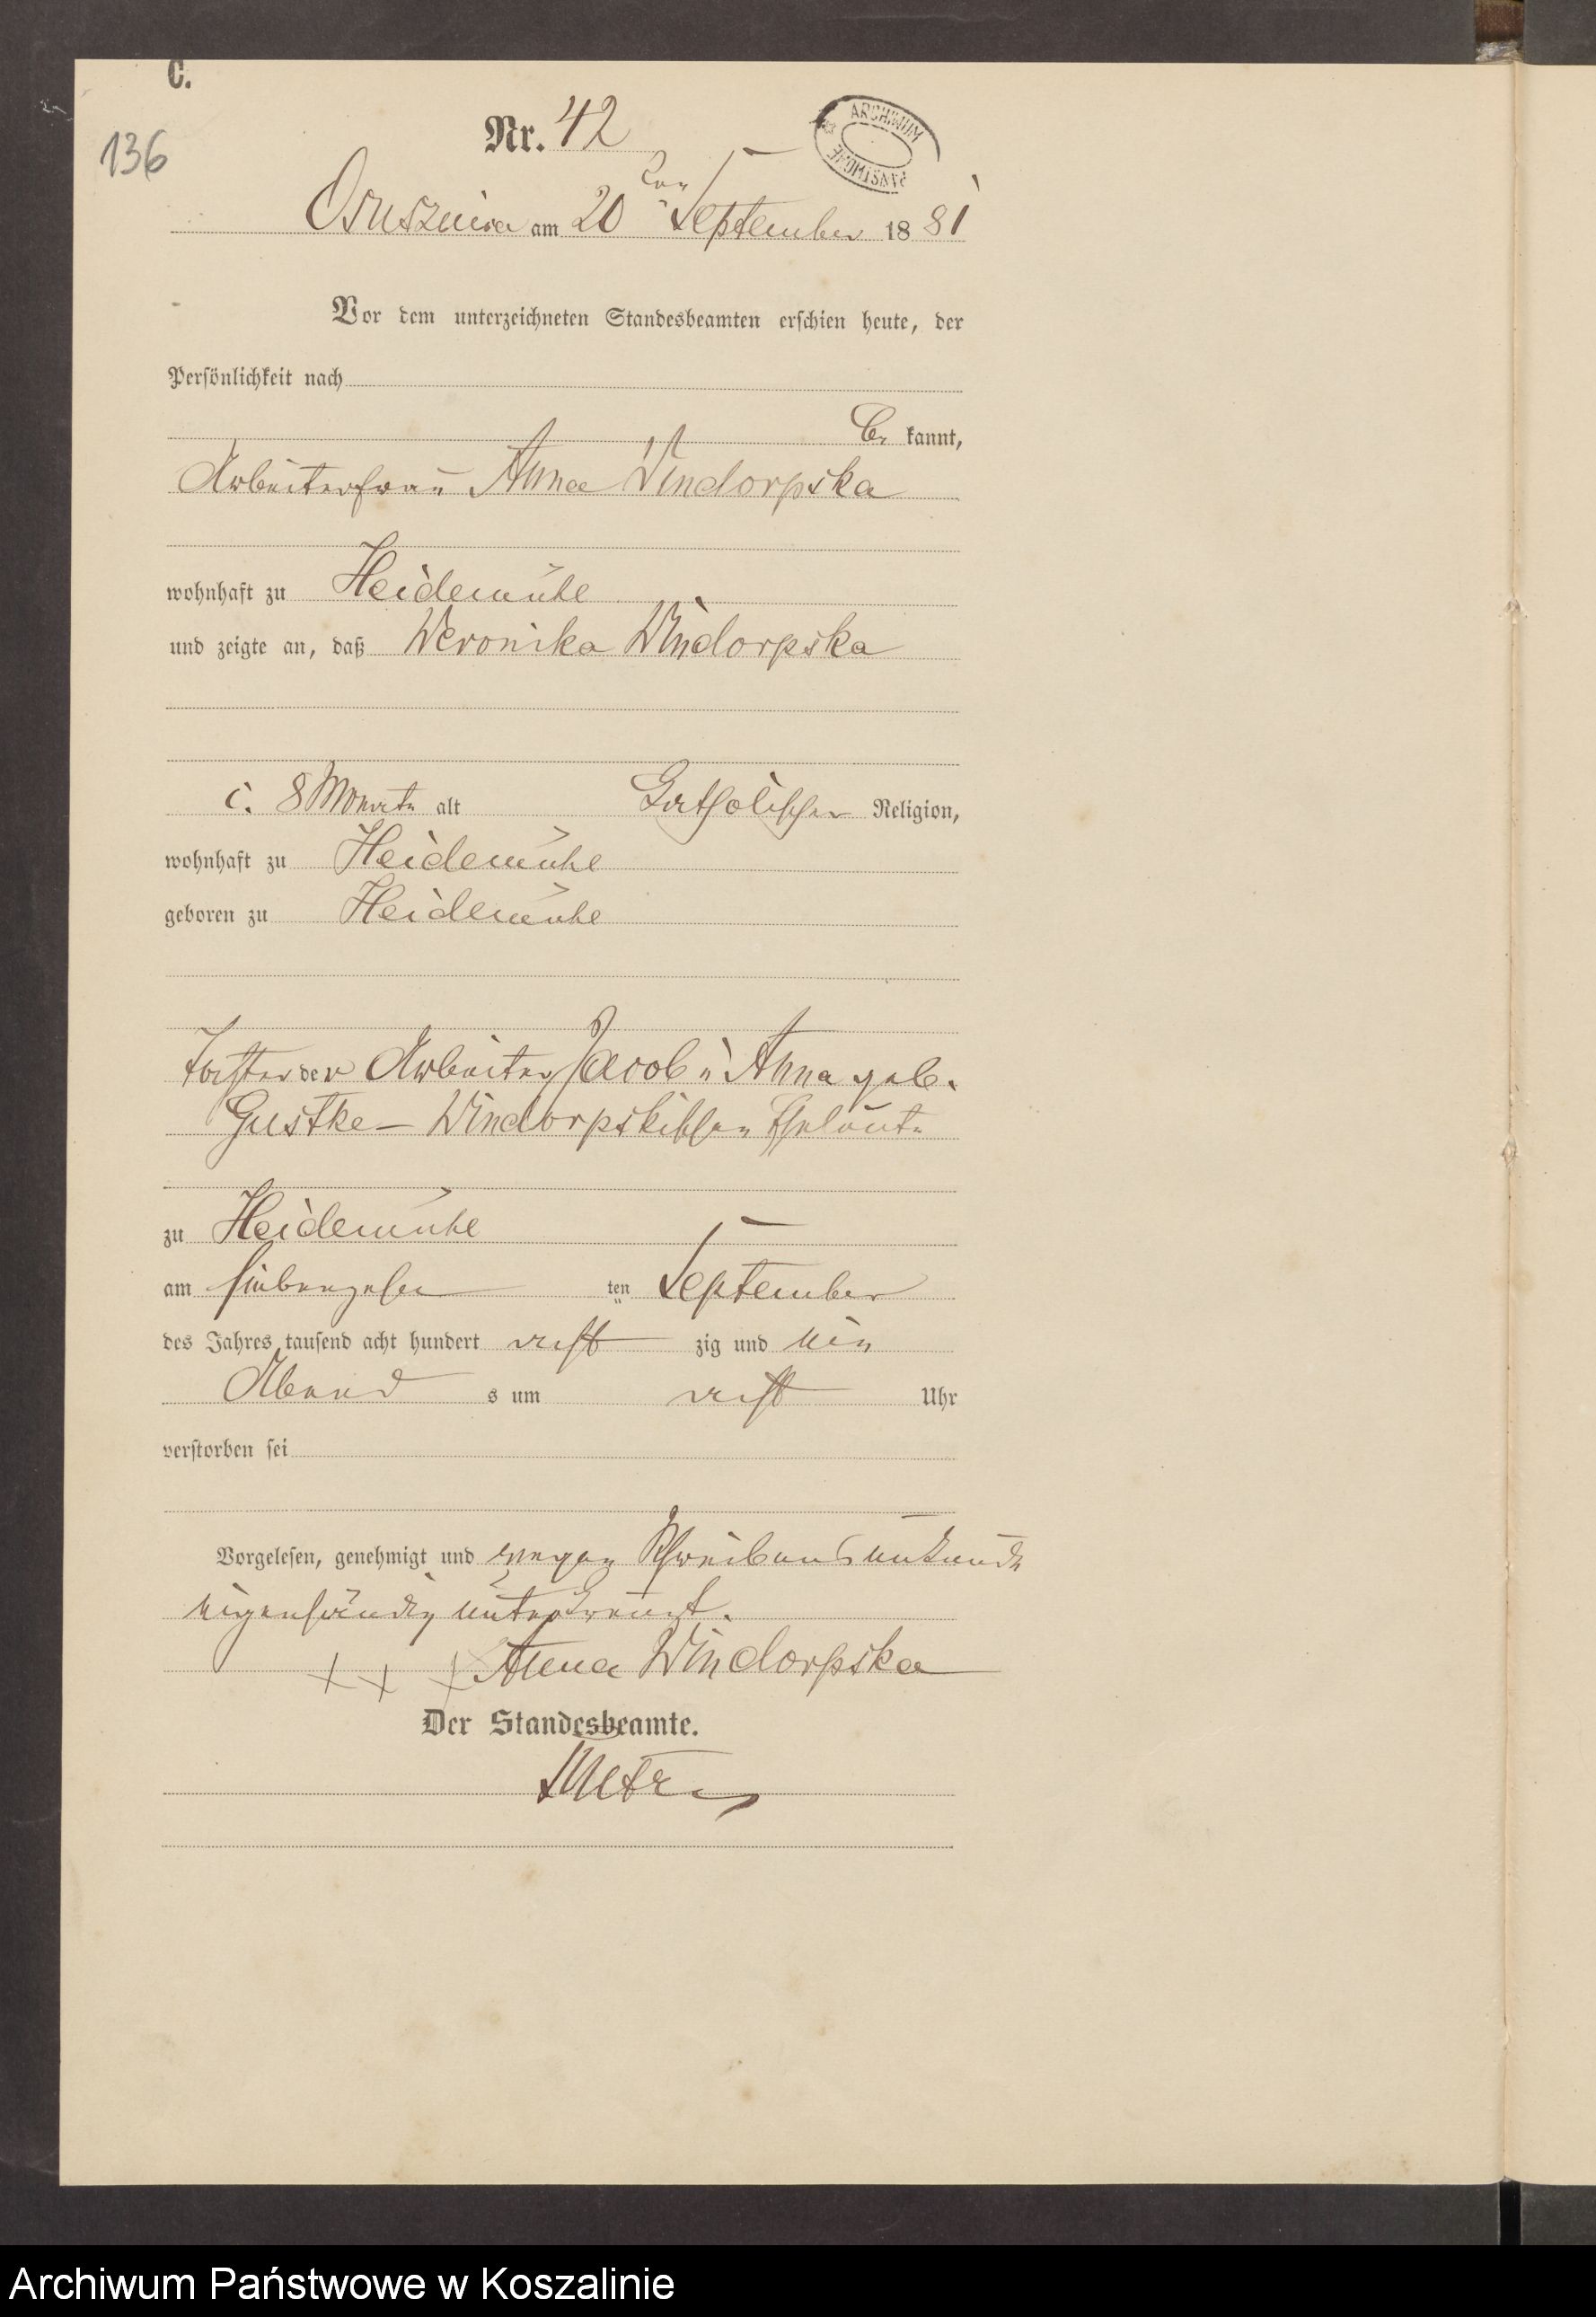 C.
136
Nr. 42
ARCHIWUM PAŃSTWOWE
Osusznica am 20ten September 1881
Vor dem unterzeichneten Standesbeamten erschien heute, der
Persönlichkeit nach
be kannt,
Arbeiterfrau Anna Windorpska
wohnhaft zu Heidemühl
und zeigte an, daß Weronika Windorpska
8 Monate alt Catholischer Religion,
wohnhaft zu Heidemühl
geboren zu Heidemühl
Tochter der Arbeiter Jacob u Anna geb.
Gustke – Windorpskischen Eheleute
zu Heidemühl
am siebenzehn ten September
des Jahres tausend acht hundert acht zig und ein
Abend s um acht Uhr
verstorben sei
Vorgelesen, genehmigt und wegen Schreibensunkunde
eigenhändig unterkreuzt.
+ + + Anna Windorpska
Der Standesbeamte.
Archiwum Państwowe w Koszalinie